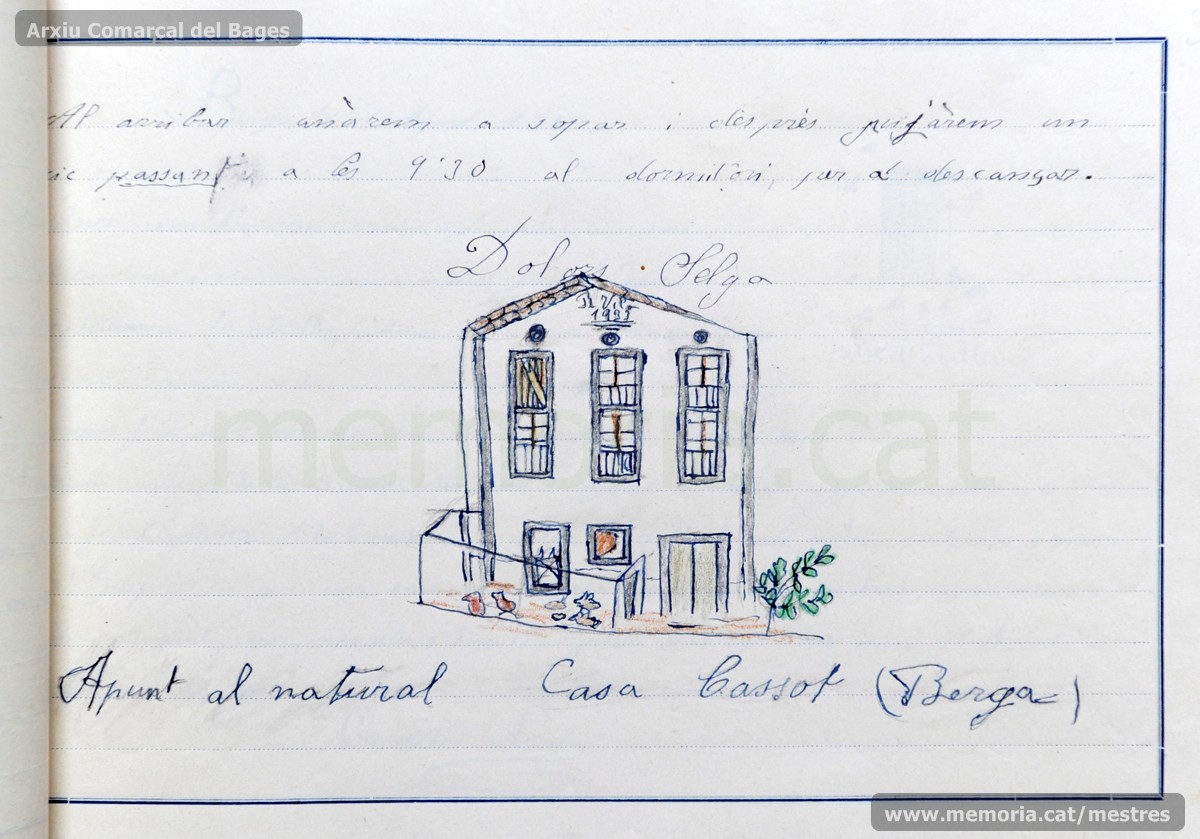 Arxiu Comarcal del Bages
Al arribar anàrem a sopar i després pujàrem un
ic passant a les 9'30 al dormitòri, per a descançar.
Dolors Selga
1935
memoria.cat
Apunt al natural Casa Cassot (Berga)
www.memoria.cat/mestres